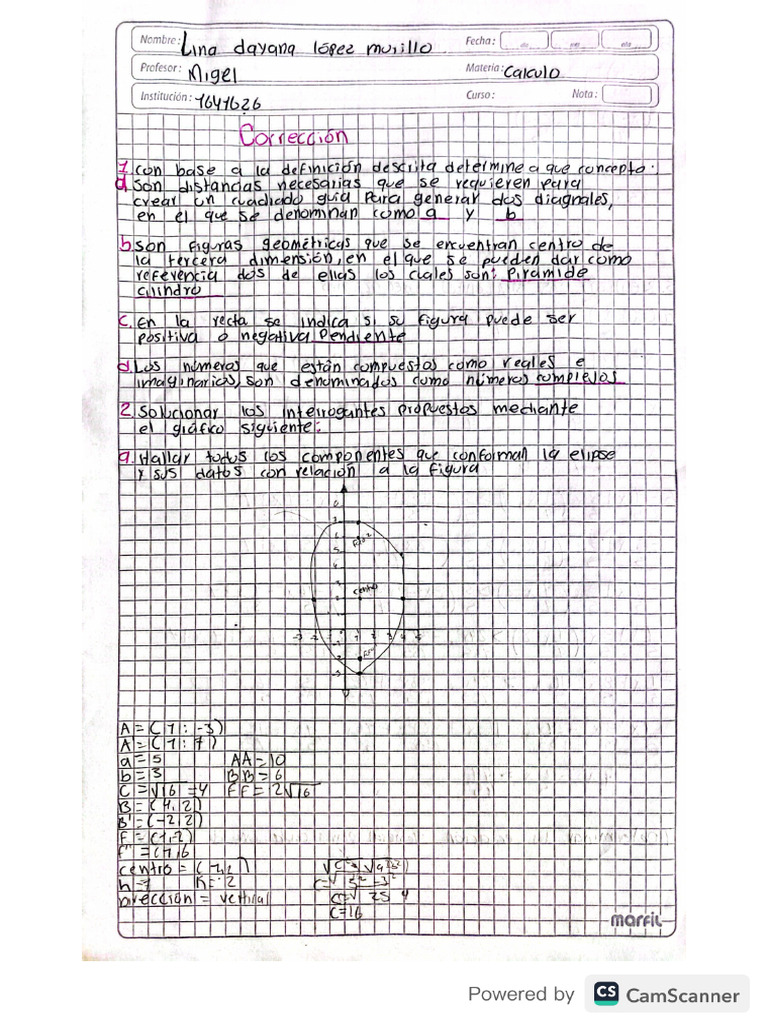 Nombre: Lina dayana lópez murillo Fecha: día mes año
Profesor: Migel Materia: Calculo
Institución: 1641626 Curso: Nota:
Corrección
1. con base a la definición descrita determine a que concepto.
a. son distancias necesarias que se requieren para
crear un cuadrado guia para generar dos diagnales,
en el que se denominan como a y b
b. son figuras geométricas que se encuentran centro de
la tercera dimensión, en el que se pueden dar como
referencia dos de ellas los cuales son: Piramide
cilindro
C. En la recta se indica si su figura puede ser
positiva o negativa Pendiente
d. Los números que están compuestos como reales e
imaginarios, son denominados como números complejos
2. Solucionar los interrogantes propuestos mediante
el gráfico siguiente:
a. Hallar todos los componentes que conforman la elipse
y sus datos con relación a la figura
centro
A = (1 : -3)
A' = (1 : 7)
a = 5 AA = 10
b = 3 BB = 6
C = √16 = 4 FF = 2√16
B = (4, 2)
B' = (-2, 2)
F = (1, -2)
F' = (1, 6
centro = (1, 2)
h = 1 K = 2
Dirección = vertical
C = √5² - 3²
C = 16
marfil
Powered by CS CamScanner